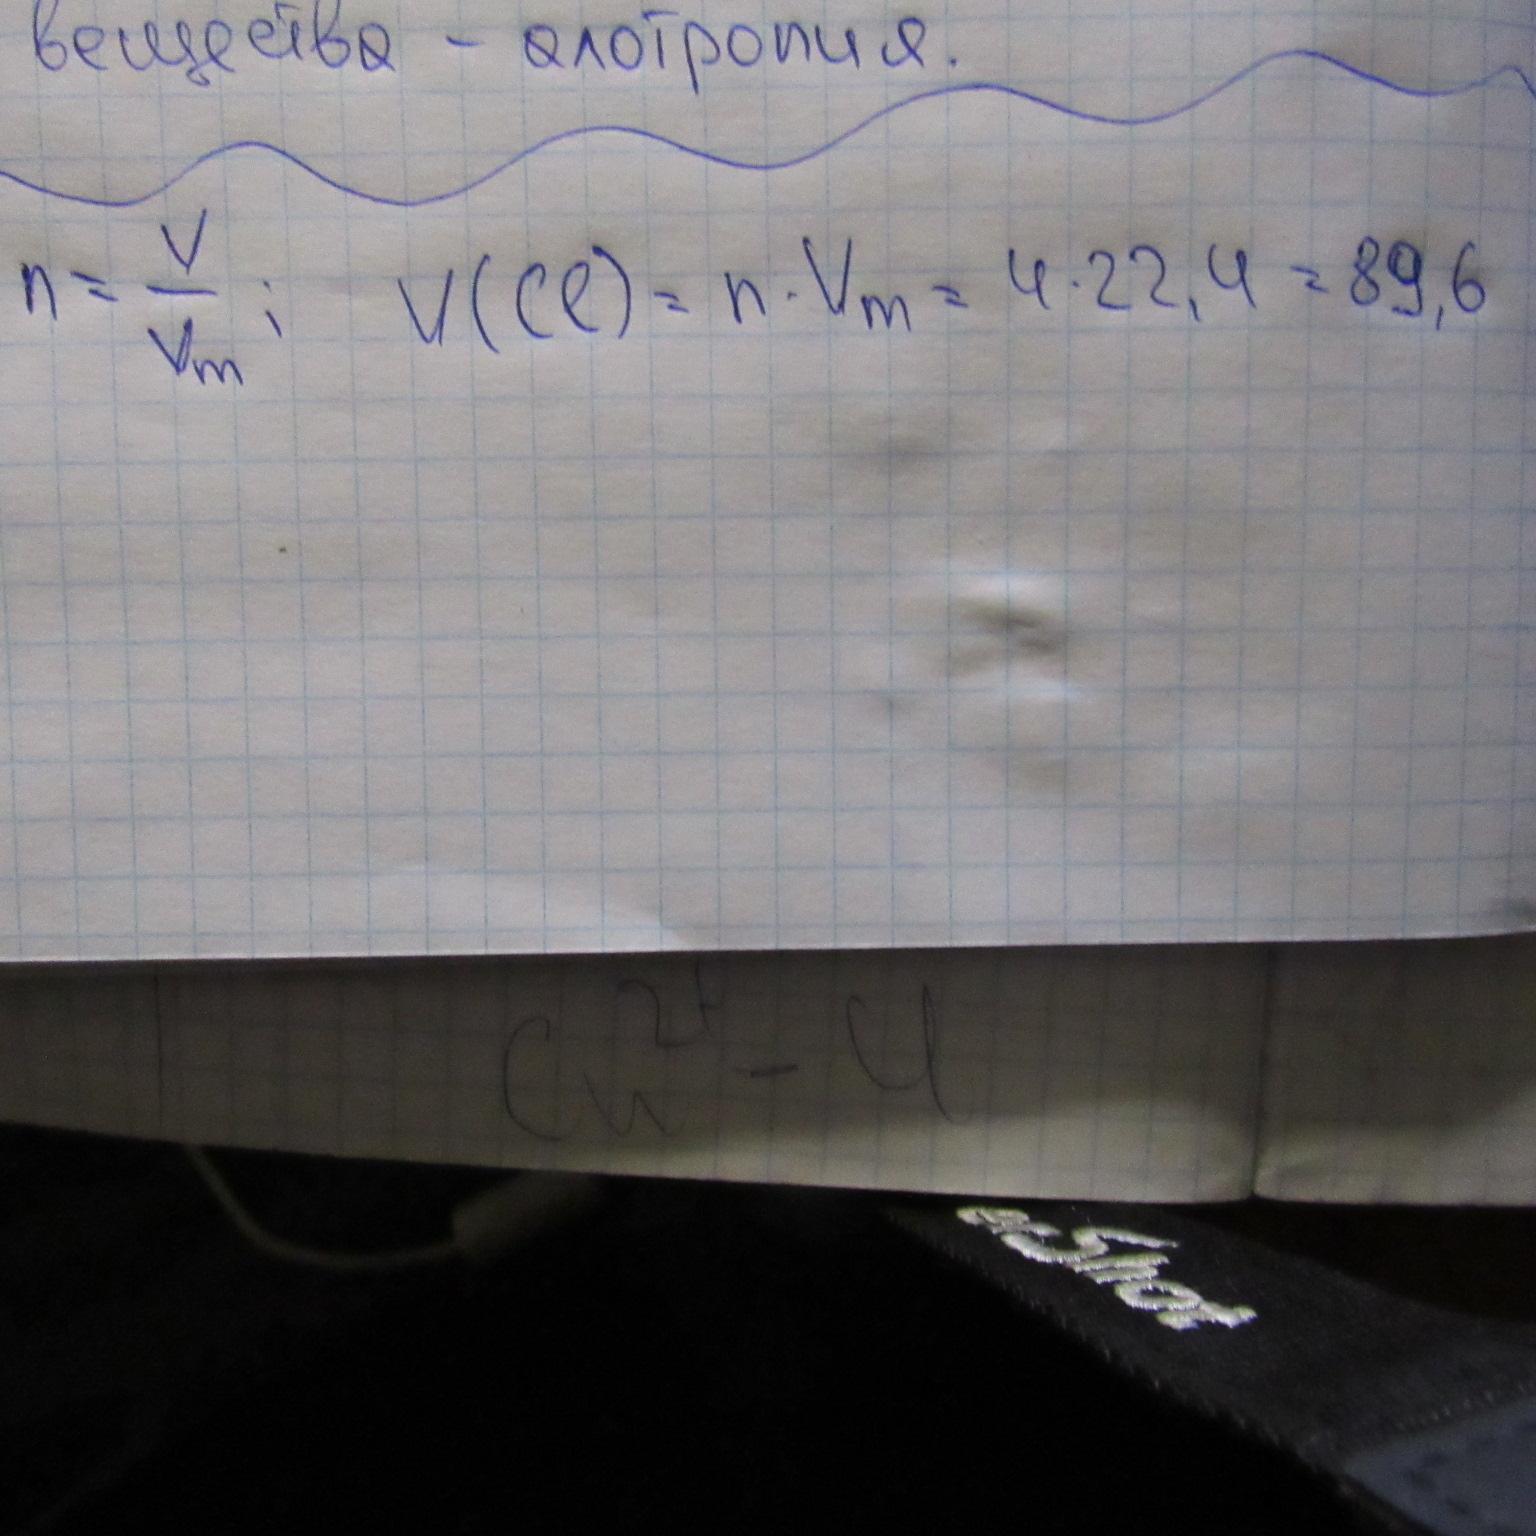 вещества - алотропия.
n = V/Vm; V(Cl) = n · Vm = 4 · 22,4 = 89,6
Cu²⁺ - 4
erShot